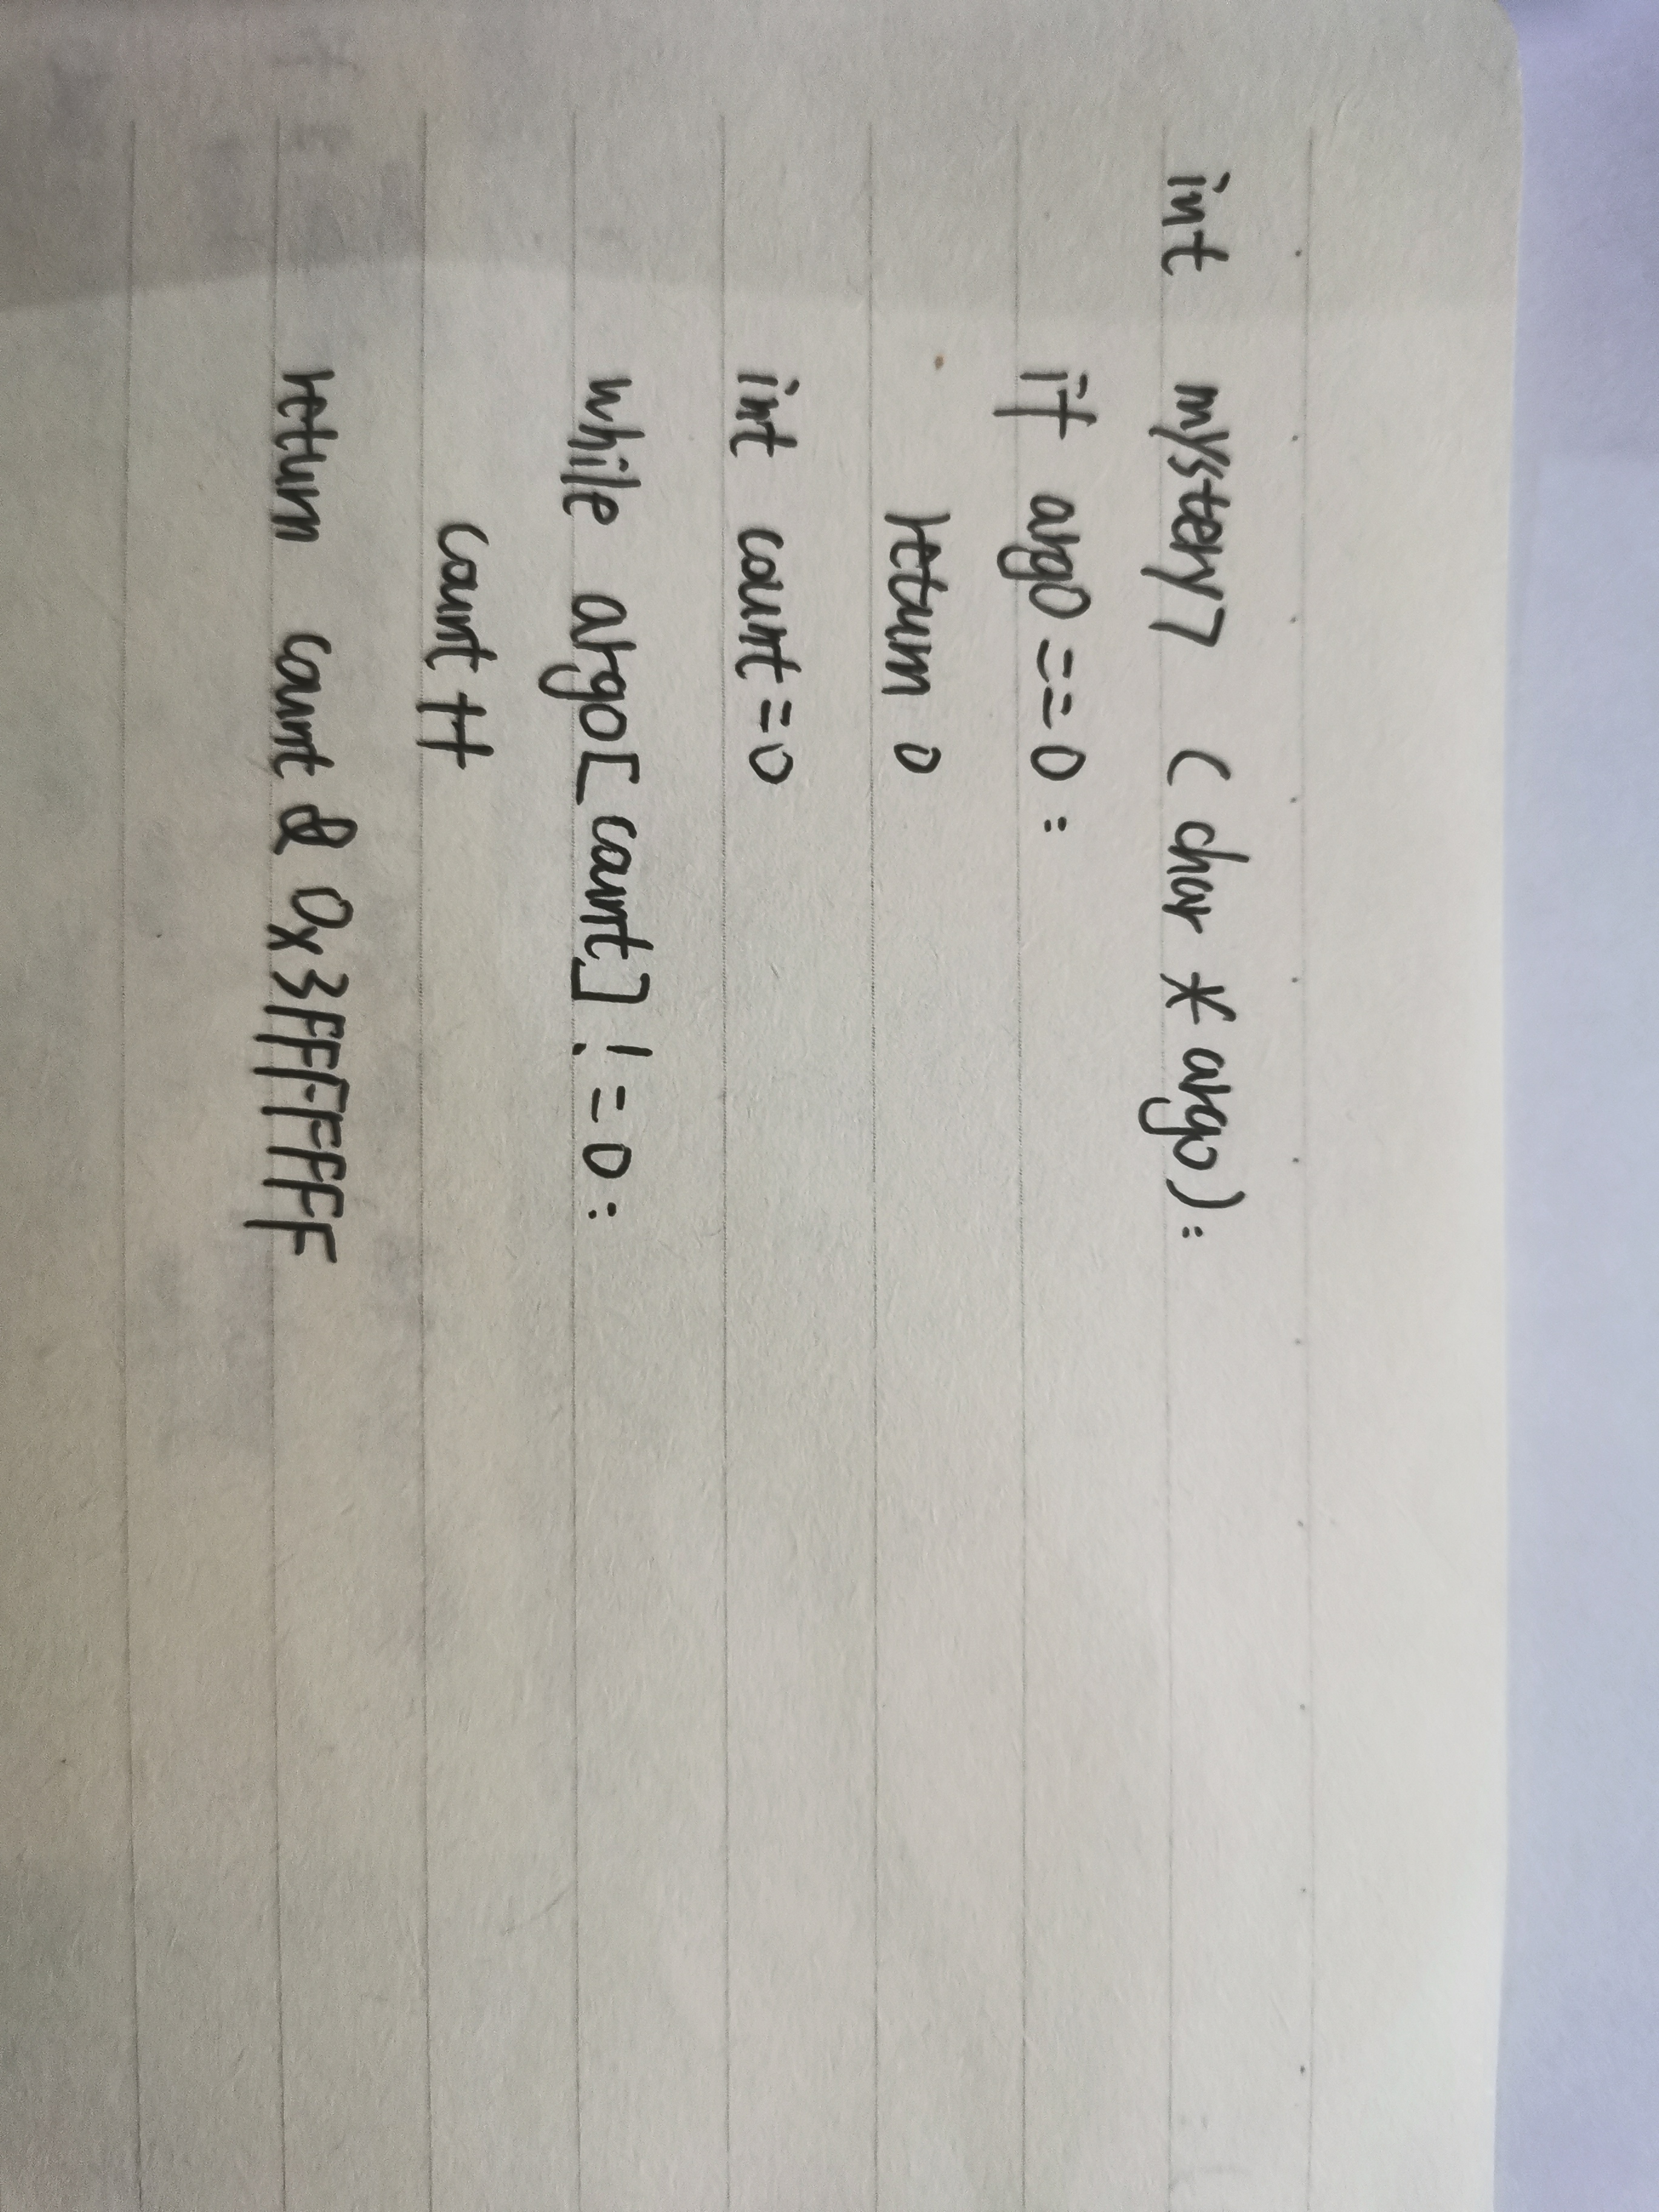 int mystery7 (char * arg0):
if arg0 == 0 :
return 0
int count = 0
while arg0[count] != 0 :
count ++
return count & 0x3FFFFFFF